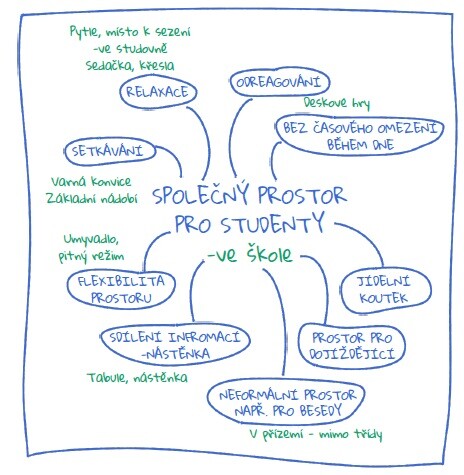 Pytle, místo k sezení
-ve studovně
Sedačka, křesla
RELAXACE
ODREAGOVÁNÍ
Deskové hry
BEZ ČASOVÉHO OMEZENÍ
BĚHEM DNE
SETKÁVÁNÍ
Varná konvice
Základní nádobí
SPOLEČNÝ PROSTOR
PRO STUDENTY
-ve škole
Umyvadlo,
pitný režim
FLEXIBILITA
PROSTORU
JÍDELNÍ
KOUTEK
SDÍLENÍ INFROMACÍ
-NÁSTĚNKA
PROSTOR PRO
DOJÍŽDĚJÍCÍ
Tabule, nástěnka
NEFORMÁLNÍ PROSTOR
NAPŘ. PRO BESEDY
V přízemí - mimo třídy